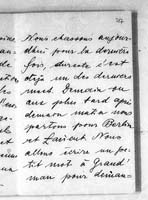 Nous chassons aujour-
d'hui pour la dernière
fois, durste c'est
déjà un des derniers
mail. Demain ou
au plus tard après
demain matin nous
partons pour Berlin
et Laurent. Nous
allons écrire un pe-
tit mot à Grand'
man pour deman-